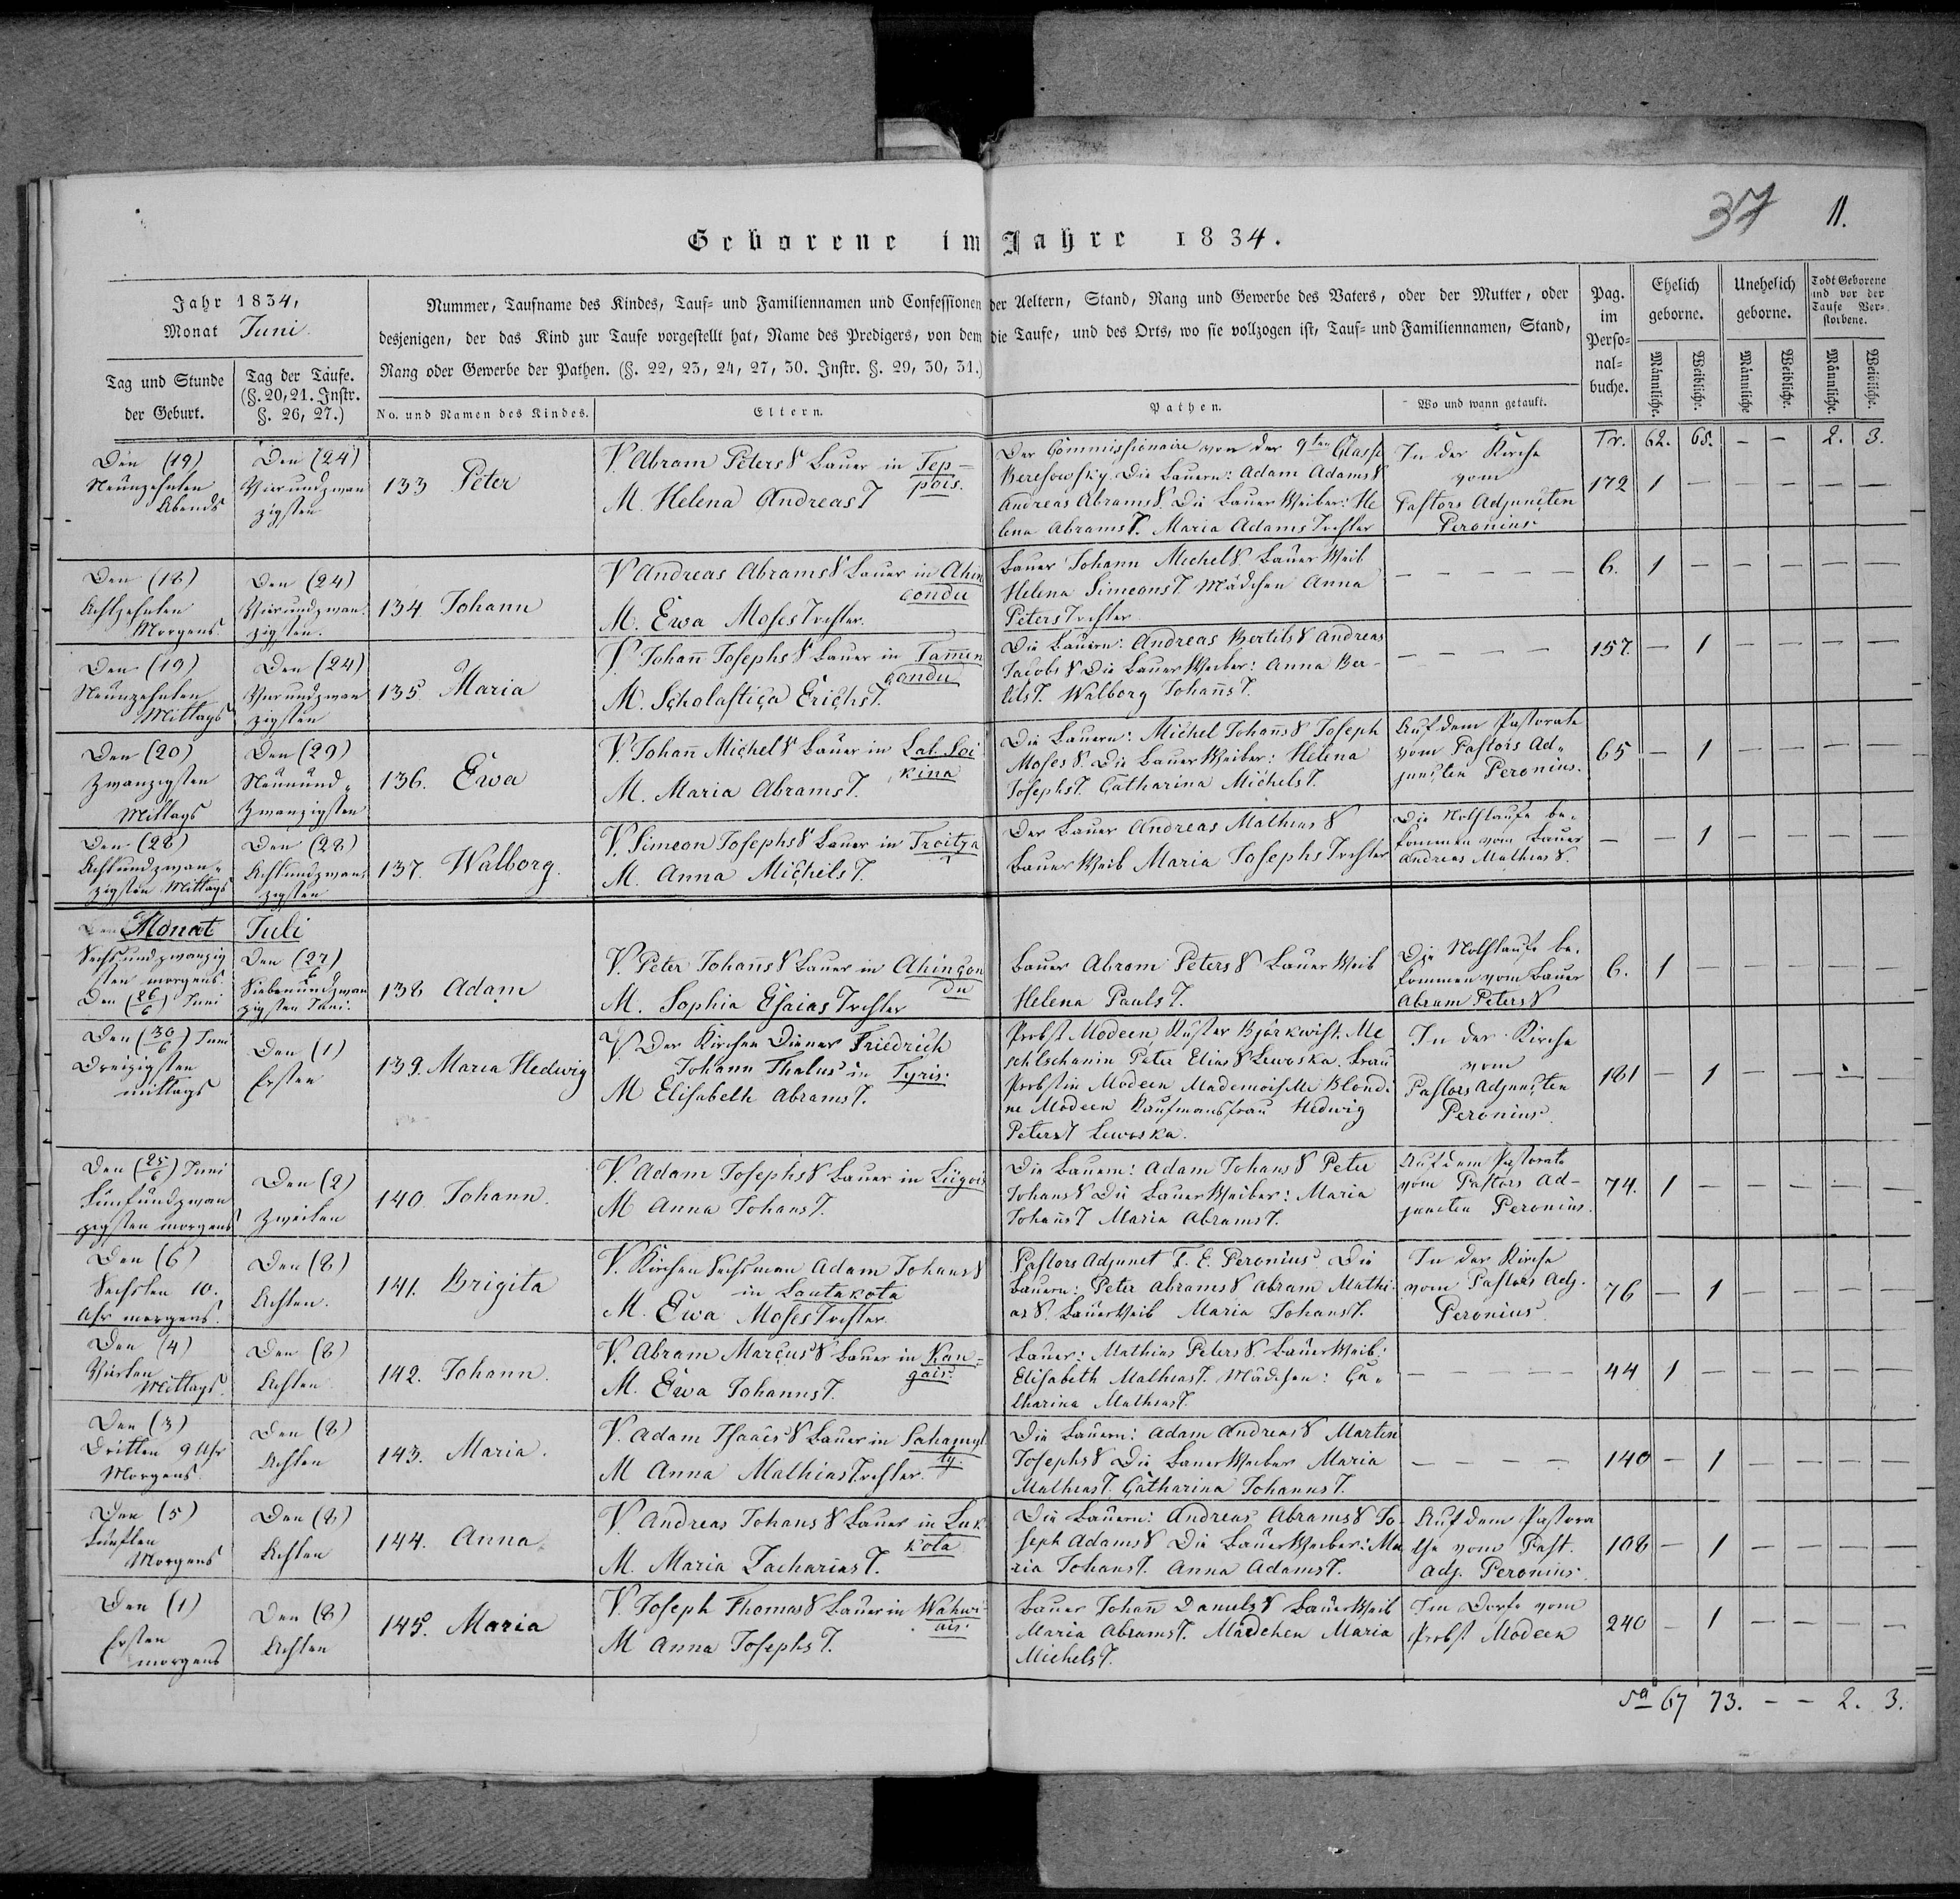 37 11.
Geborene im Jahre 1834.
Jahr 1834,
Monat Juni.
Tag und Stunde
der Geburt.
Tag der Taufe.
(§. 20, 21. Instr.
§. 26, 27.)
Nummer, Taufname des Kindes, Tauf- und Familiennamen und Confessionen der Aeltern, Stand, Rang und Gewerbe des Vaters, oder der Mutter, oder
desjenigen, der das Kind zur Taufe vorgestellt hat, Name des Predigers, von dem die Taufe, und des Orts, wo sie vollzogen ist, Tauf- und Familiennamen, Stand,
Rang oder Gewerbe der Pathen. (§. 22, 23, 24, 27, 30. Instr. §. 29, 30, 31.)
No. und Namen des Kindes.
Eltern.
Pathen.
Wo und wann getauft.
Pag.
im
Perso-
nal-
buche.
Ehelich
geborne.
Unehelich
geborne.
Todt Geborene
und vor der
Taufe Ver-
storbene.
Männliche.
Weibliche.
Männliche
Weibliche.
Männliche.
Weibliche.
Tr. 62. 65. - - 2. 3.
Den (19)
Neunzehnten
Abends
Den (24)
Vierundzwan
zigsten
133 Peter
V. Abram Peters S Bauer in Tep-
pois.
M. Helena Andreas T
Der Commissionaire von der 9ten Classe
Beresowsky. Die Bauern: Adam Adams S
Andreas Abrams S. Die Bauer Weiber: He
lena Abrams T. Maria Adams Tochter
In der Kirche
vom
Pastors Adjuncten
Peronius
172 1 - - - - -
Den (18)
Achtzehnten
Morgens
Den (24)
Vierundzwan
zigsten.
134 Johann
V Andreas Abrams S Bauer in Ahin
condu
M. Ewa Moses Tochter.
Bauer Johann Michels S. Bauer Weib
Helena Simeons T. Mädchen Anna
Peters Tochter
- - - - -
6. 1 - - - - -
Den (19)
Neunzehnten
Mittags
Den (24)
Vierundzwan
zigsten
135 Maria
V Johan̄ Josephs S Bauer in Tam̄en
condu
M. Scholastica Erichs T.
Die Bauern: Andreas Bertils S Andreas
Jacobs S Die Bauer Weiber: Anna Ber-
tils T. Walborg Johan̄s T.
- - - -
157. - 1 - - - -
Den (20)
Zwanzigsten
Mittags
Den (29)
Neunund„
Zwanzigsten
136. Ewa
V. Johan̄ Michels S Bauer in Lal. Loi
kina
M. Maria Abrams T.
Die Bauern: Michel Johan̄s S Joseph
Moses S. Die Bauer Weiber: Helena
Josephs T. Catharina Michels T.
Auf dem Pastorate
vom Pastors Ad„
juncten Peronius.
65 - 1 - - - -
Den (28)
Achtundzwan„
zigsten Mittags
Den (28)
Achtundzwan
zigsten
137. Walborg.
V. Simeon Josephs S Bauer in Troitza
M. Anna Michels T.
Der Bauer Andreas Mathias S
Bauer Weib Maria Josephs Tochter
Die Nothtaufe be-
kommen vom Bauer
Andreas Mathias S.
- - 1 - - - -
Monat Juli
Sechsundzwanzig
sten morgens.
Den (26/6) Juni
Den (27/6)
Siebenundzwan
zigsten Juni.
138 Adam
V. Peter Johan̄s S Bauer in Ahincon
du
M. Sophia Esaias Tochter
Bauer Abram Peters S Bauer Weib
Helena Pauls T.
Die Nothtaufe be-
kommen vom Bauer
Abram Peters S
6. 1 - - - - -
Den (30/6) Juni
Dreizigsten
mittags
Den (1)
Ersten
139. Maria Hedwig
V. Der Kirchen Diener Friedrich
Johann Thalus in Tyris.
M Elisabeth Abrams T.
Probst Modeen, Küster Björkwist. Me
schtschanin Peter Elias S Lewoska. Frau
Probstin Modeen Mademoiselle Blondi
ne Modeen Kaufmansfrau Hedwig
Peters T Lewoska.
In der Kirche
vom
Pastors Adjuncten
Peronius.
181 - 1 - - - -
Den (25/6) Juni
Fünfundzwan
zigsten morgens
Den (2)
Zweiten
140. Johann.
V. Adam Josephs S Bauer in Lügois
M Anna Johans T.
Die Bauern: Adam Johans S Peter
Johans S Die Bauer Weiber: Maria
Johan̄s T Maria Abrams T.
Auf dem Pastorate
vom Pastors Ad-
juncten Peronius.
74. 1 - - - - -
Den (6)
Sechsten 10.
Uhr morgens.
Den (8)
Achten.
141. Brigita
V. Kirchen Vechsman Adam Johans S
in Lautakota
M. Ewa Moses Tochter
Pastors Adjunct F. E. Peronius. Die
Bauern: Peter Abrams S Abram Mathi-
as S. Bauer Weib Maria Johans T.
In der Kirche
vom Pastors Adj.
Peronius
76 - 1 - - - -
Den (4)
Vierten
Mittags.
Den (8)
Achten
142. Johann.
V. Abram Marcus S Bauer in Kan-
gais
M. Ewa Johanns T.
Bauer: Mathias Peters S Bauer Weib:
Elisabeth Mathias T. Mädchen: Ca„
tharina Mathias T.
- - - - -
44 1 - - - - -
Den (3)
Dritten 9 Uhr
Morgens
Den (8)
Achten
143. Maria.
V. Adam Isaacs S Bauer in Sahamyl
ly.
M Anna Mathias Tochter.
Die Bauern: Adam Andreas S Marten
Josephs S Die Bauer Weiber Maria
Mathias T. Catharina Johanns T.
- - - -
140 - 1 - - - -
Den (5)
Fünften
Morgens
Den (8)
Achten
144. Anna.
V. Andreas Johans S Bauer in Luk
kota
M. Maria Zacharias T.
Die Bauern: Andreas Abrams S Jo-
seph Adams S Die Bauer Weiber: Ma
ria Johans T. Anna Adams T.
Auf dem Pastora
the vom Past.
Adj. Peronius.
108 - 1 - - - -
Den (1)
Ersten
morgens
Den (8)
Achten
145. Maria
V. Joseph Thomas S Bauer in Wahwi-
ais.
M Anna Josephs T.
Bauer Johan̄ Daniels S Bauer Weib
Maria Abrams T. Mädchen Maria
Michels T.
Im Dorfe vom
Probst Modeen
240 - 1 - - - -
Sa 67 73. - - 2. 3.